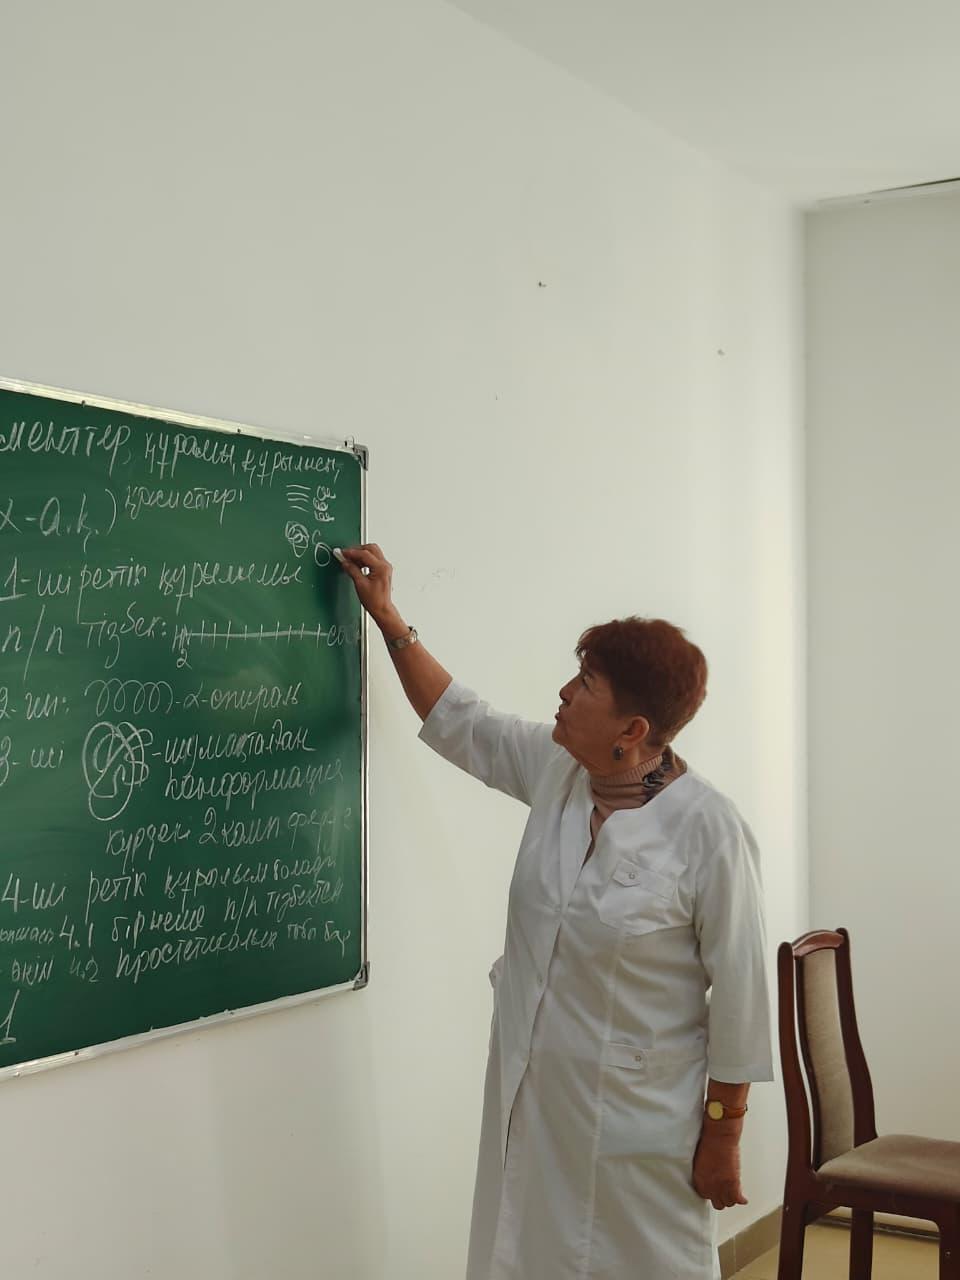 менттер, құрамы, құрылысы,
α-а.қ.) қасиеттері
1-ші реттік құрылымы.
п/п тізбек: NH2 COO
2-ши: -α-спираль
3-ші -шумақталған
конформация
күрделі 2 комп
4-ши ретік құрылым болады
4.1 бірнеше п/п тізбектен
өкіл 4.2 простетикалық тобы бар
1